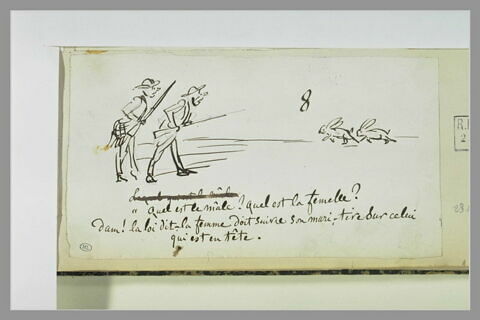 8
Lequel est le mâle
" Quel est le mâle ? Quel est la femelle ?
Dam ! la loi dit - la femme doit suivre son mari - tire sur celui
qui est en tête .
R.F
2